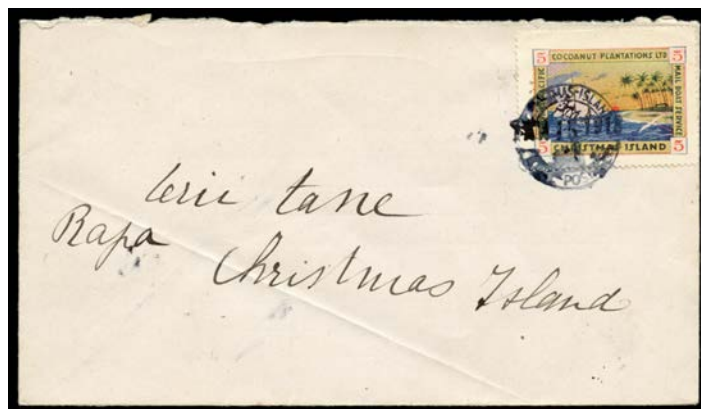 5 COCOANUT PLANTATIONS LTD 5
PACIFIC
MAIL BOAT SERVICE
5 CHRISTMAS ISLAND 5
tane
Rapa
Christmas Island